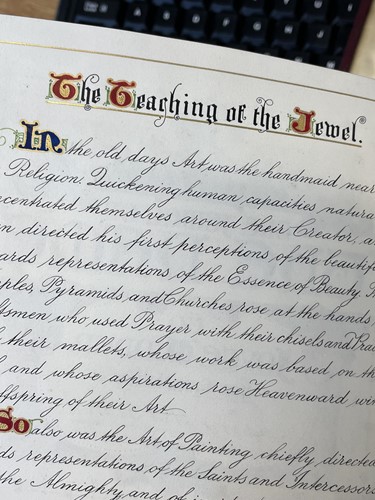 The Teaching of the Jewel.
In the old days Art was the handmaid near
Religion. Quickening human capacities natura
ncentrated themselves around their Creator, a
n directed his first perceptions of the beautif
ards representations of the Essence of Beauty.
ples, Pyramids, and Churches rose at the hands
tsmen who used Prayer with their chisels and Pra
their mallets, whose work was based on th
and whose aspirations rose Heavenward wi
ffspring of their Art
So also was the Art of Painting chiefly directed
ds representations of the Saints and Intercessors
the Almighty and